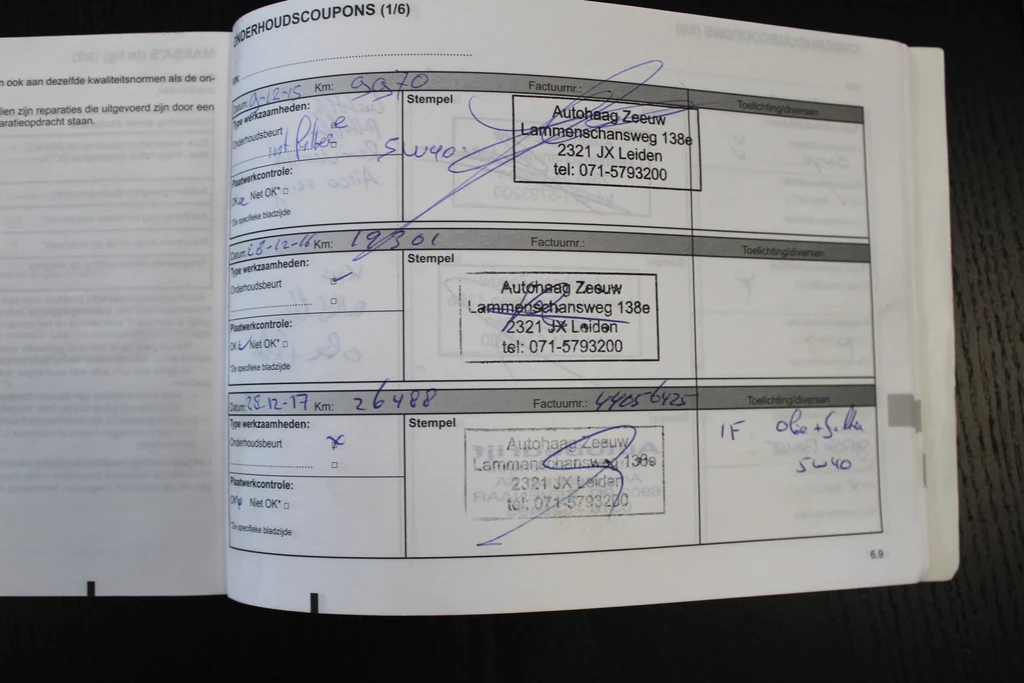 n ook aan dezelfde kwaliteitsnormen als de on-
lien zijn reparaties die uitgevoerd zijn door een
aratieopdracht staan.
ONDERHOUDSCOUPONS (1/6)
Datum: 9-12-15 Km: 9970 Factuurnr.: Toelichting/diversen
Type werkzaamheden:
Onderhoudsbeurt
5W40
Plaatwerkcontrole:
OK Niet OK* □
*De specifieke bladzijde
Stempel
Autohaag Zeeuw
Lammenschansweg 138e
2321 JX Leiden
tel: 071-5793200
Datum: 28-12-16 Km: 19301 Factuurnr.: Toelichting/diversen
Type werkzaamheden:
Onderhoudsbeurt
Plaatwerkcontrole:
OK Niet OK* □
*De specifieke bladzijde
Stempel
Autohaag Zeeuw
Lammenschansweg 138e
2321 JX Leiden
tel: 071-5793200
Datum: 28-12-17 Km: 26488 Factuurnr.: 44056425 Toelichting/diversen
Type werkzaamheden:
Onderhoudsbeurt x
Plaatwerkcontrole:
OK Niet OK* □
*De specifieke bladzijde
Stempel
Autohaag Zeeuw
Lammenschansweg 138e
2321 JX Leiden
tel: 071-5793200
1F Olie + filter
5W40
6.9